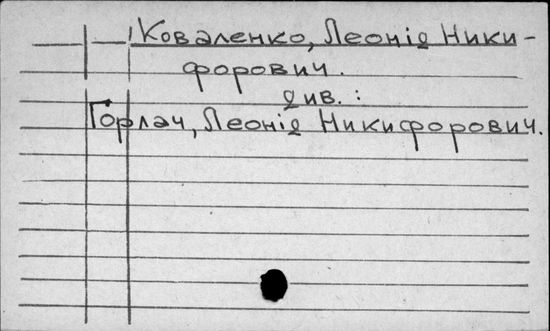 Коваленко, Леонід Ники-
форович.
див.:
Горлач, Леонід Никифорович.